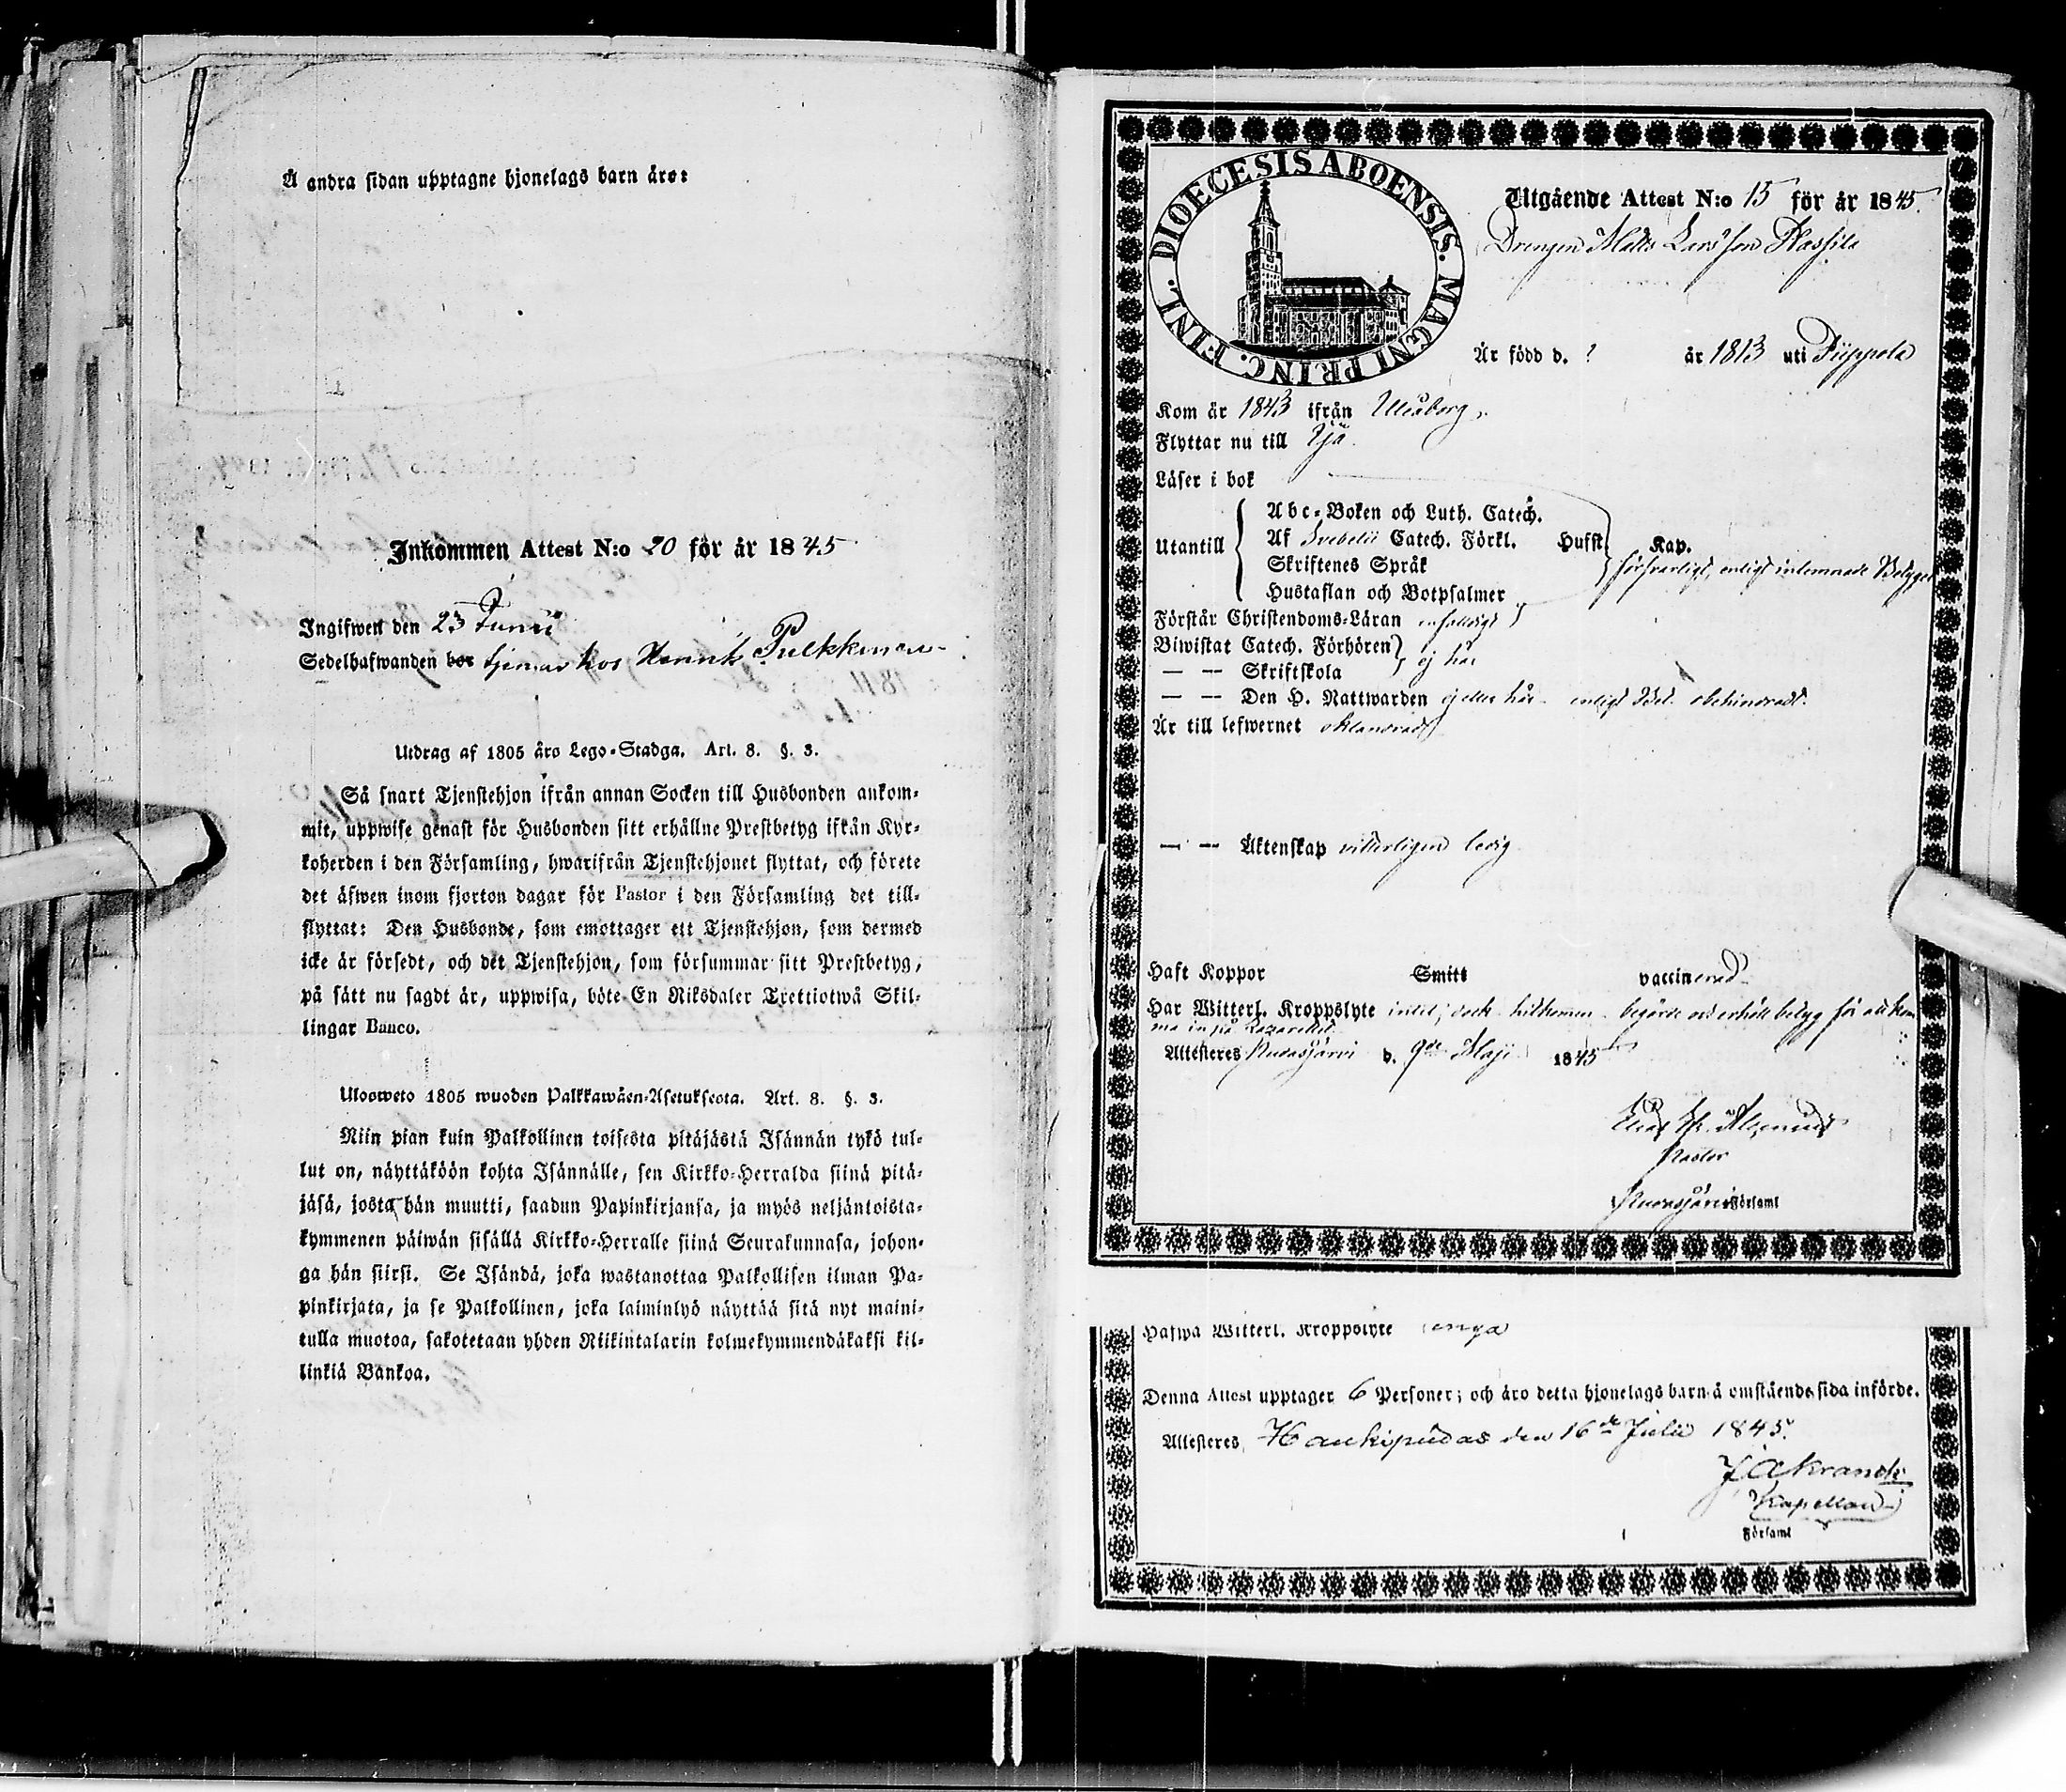 Å andra sidan upptagne hjonelags barn äro:
Inkommen Attest N:o 20 för år 1845
Ingifwen den 23 Junii
Sedelhafwanden bor tjenar hos Henrik Pulkkinen
Utdrag af 1805 års Lego-Stadga. Art. 8. §. 3.
Så snart Tjenstehjon ifrån annan Socken till Husbonden ankom-
mit, uppwise genast för Husbonden sitt erhållne Prestbetyg ifrån Kyr-
koherden i den Församling, hwarifrån Tjenstehjonet flyttat, och förete
det äfwen inom fjorton dagar för Pastor i den Församling det till-
flyttat: Den Husbonde, som emottager ett Tjenstehjon, som dermed
icke är försedt, och det Tjenstehjon, som försummar sitt Prestbetyg,
på sätt nu sagdt är, uppwisa, böte En Riksdaler Trettiotwå Skil-
lingar Banco.
Ulosweto 1805 wuoden Palkkawäen-Asetuksesta. Art. 8. §. 3.
Niin pian kuin Palkollinen toisesta pitäjästä Isännän tykö tul-
lut on, näyttäköön kohta Isännälle, sen Kirkko-Herralda siinä pitä-
jäsä, josta hän muutti, saadun Papinkirjansa, ja myös neljäntoista-
kymmenen päiwän sisällä Kirkko-Herralle siinä Seurakunnasa, johon-
ga hän siirsi. Se Isändä, joka wastanottaa Palkollisen ilman Pa-
pinkirjata, ja se Palkollinen, joka laiminlyö näyttää sitä nyt maini-
tulla muotoa, sakotetaan yhden Riikintalarin kolmekymmendäkaksi kil-
linkiä Bankoa.
DIOECESIS ABOENSIS. MAGNI PRINC. FINL.
Utgående Attest N:o 15 för år 1845.
Drengen Matts Larsson Hassila
Är född d. ? år 1813 uti Piippola
Kom år 1843 ifrån Uleåborg.
Flyttar nu till Ijä
Läser i bok
Utantill
Abc-Boken och Luth. Catech.
Af Svebelii Catech. Förkl. Hufst. Kap.
Skriftenes Språk försvarligt, enligt inlemnade Betyget
Hustaflan och Botpsalmer
Förstår Christendoms-Läran enfalldigt
Biwistat Catech. Förhören ej här
— — Skriftskola
— — Den H. Nattwarden ej eller här enligt Bet. obehindradt.
Är till lefwernet oklandrad
— — Äktenskap vitterligen ledig
Haft Koppor Smitt vaccinerad
Har Witterl. Kroppslyte intet; dock begärde och erhöll betyg för att kom
ma in på Lazarettet.
Attesteres Pudasjärvi d. 9de Maji 1845
Pastor
Pudasjärvi Församl
Hafwa Witterl. Kroppslyte inga
Denna Attest upptager 6 Personer; och äro detta hjonelags barn å omstående sida införde.
Attesteres, Haukipudas den 16de Julii 1845.
J A Krank
Kapellan i
Församl